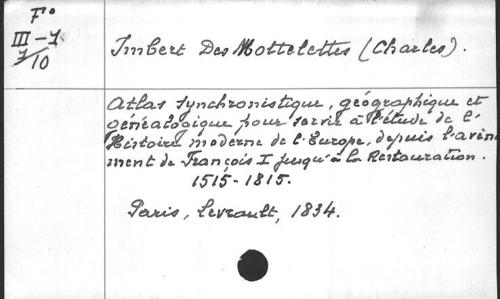 F°
III - 7
7/10
Imbert Des Mottelettes (Charles).
Atlas synchronistique, géographique et
généalogique pour servir à l'étude de l'
Histoire moderne de l'Europe, depuis l'avène
ment de François I jusqu'à la Restauration.
1515-1815.
Paris, Levrault, 1834.